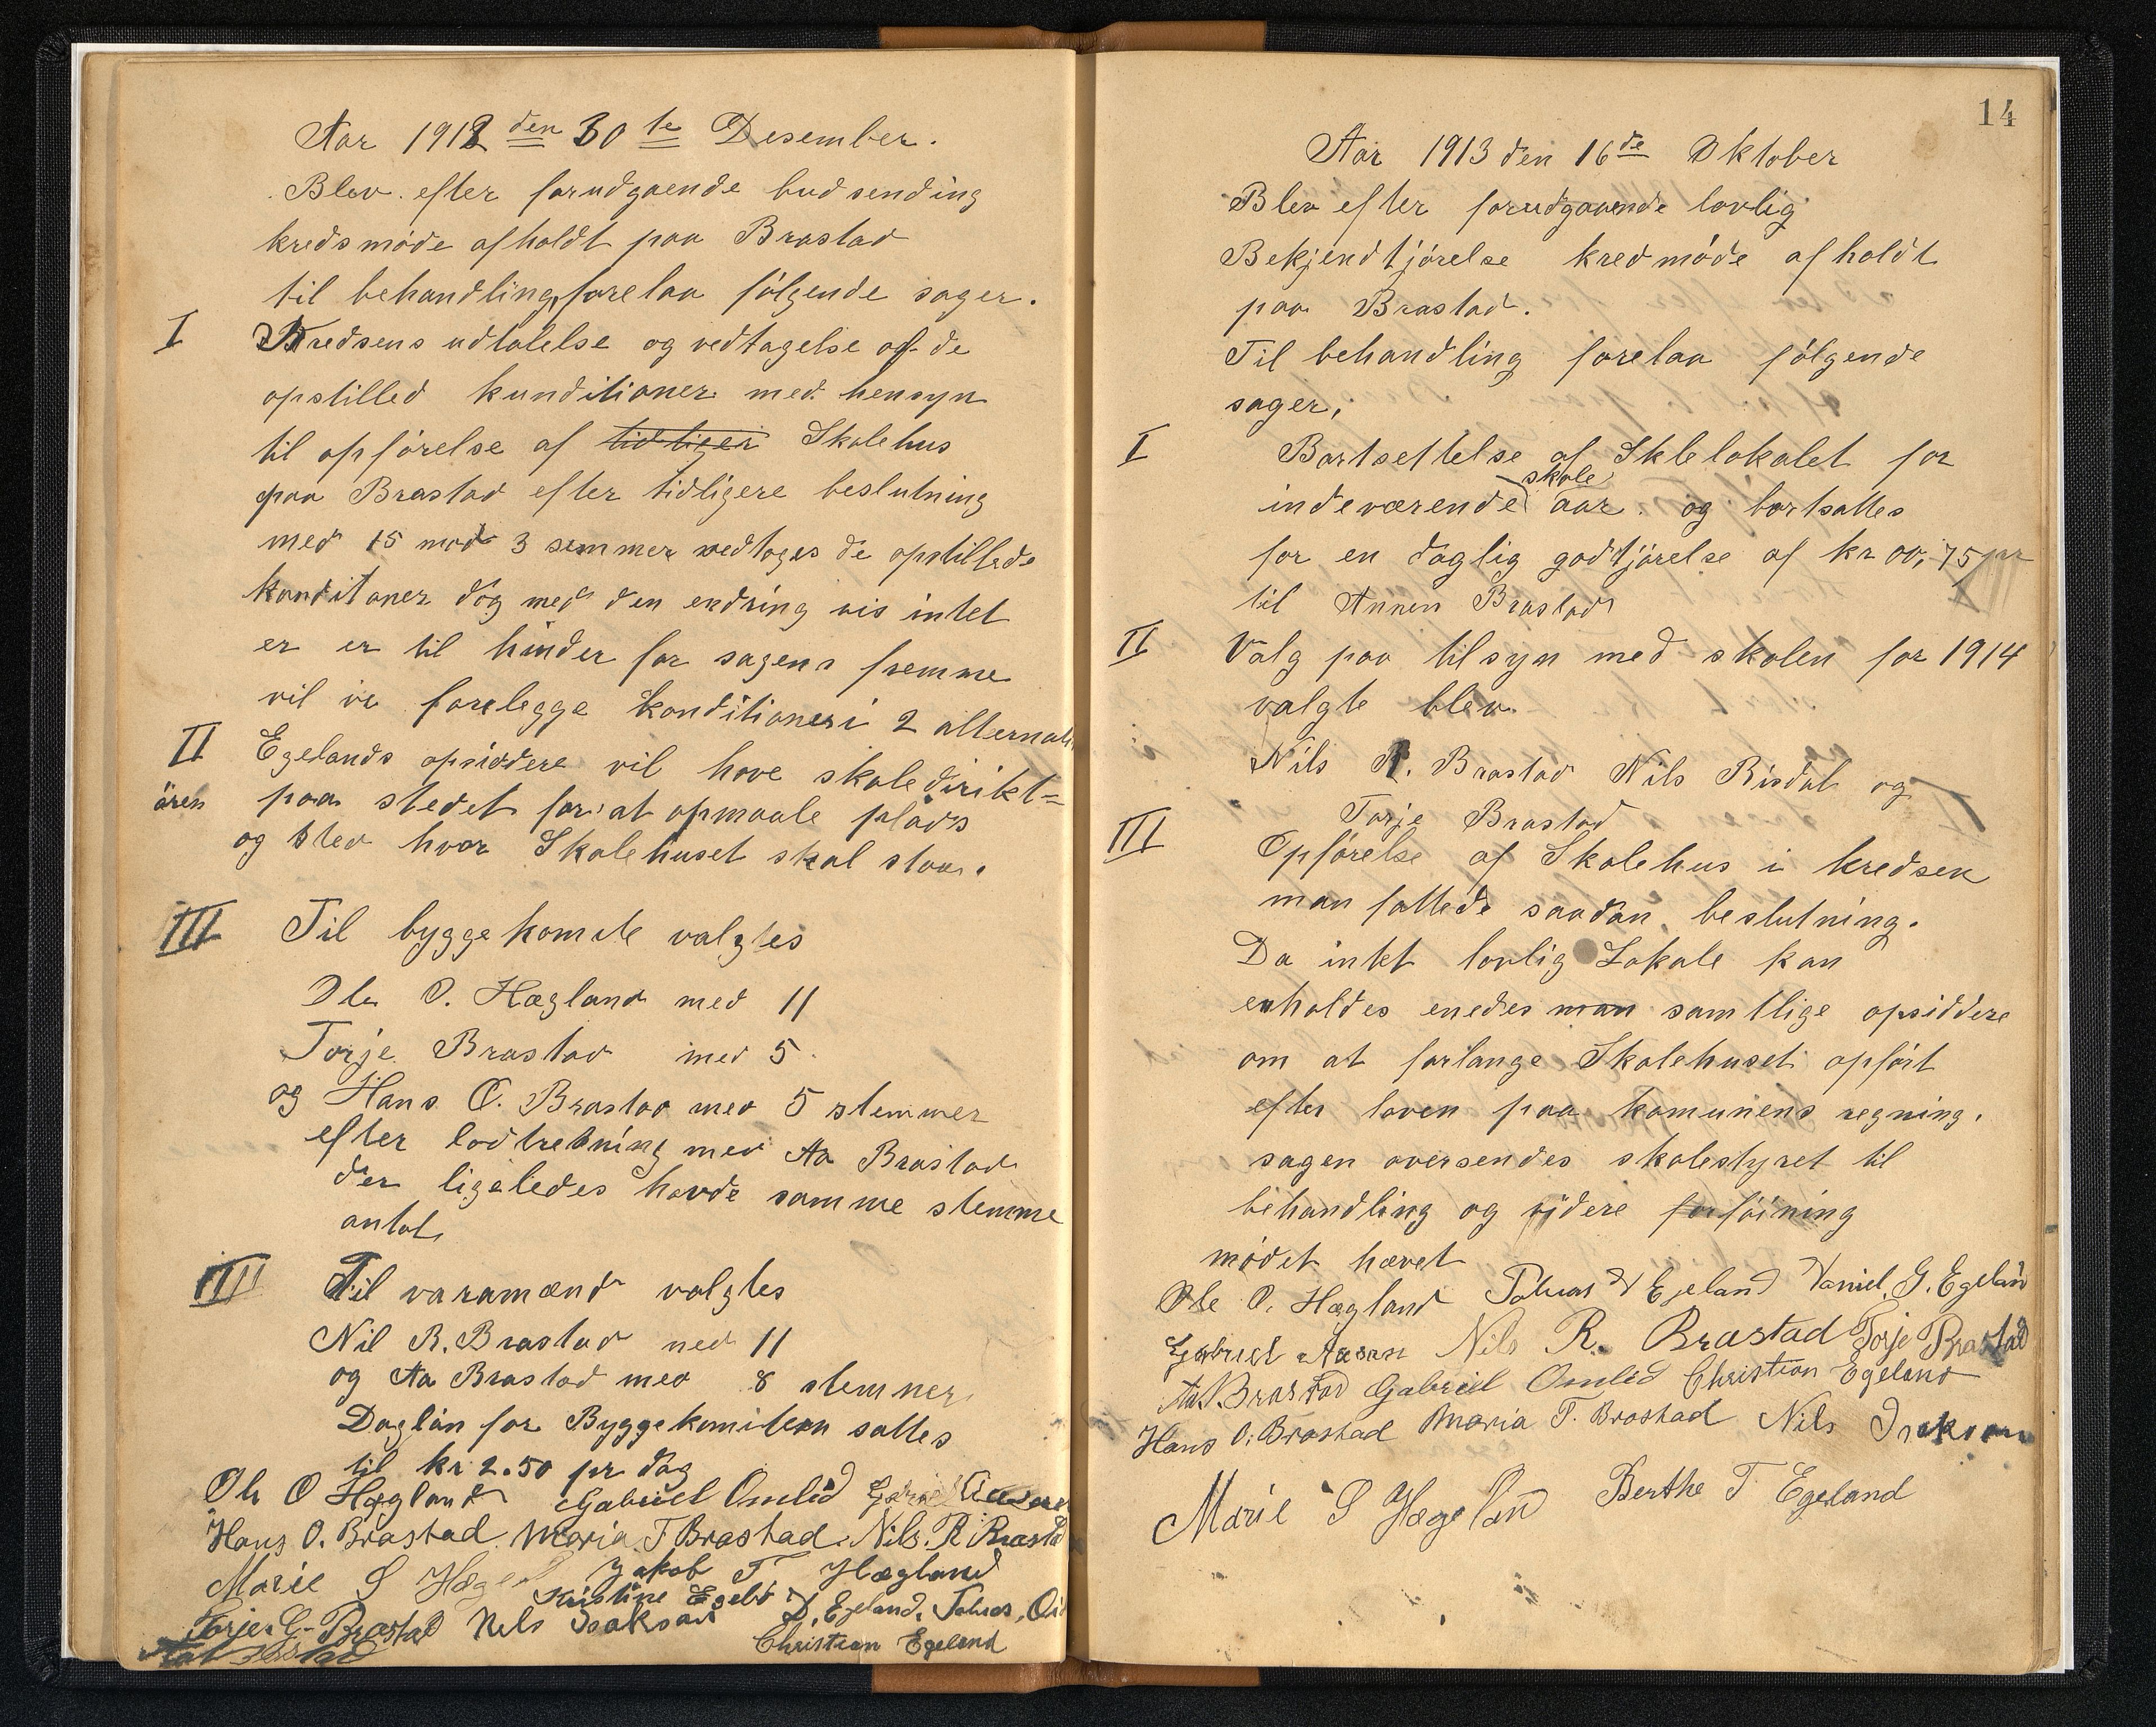 Aar 1912 den 30te Desember.
Blev efter forudgaende budsending
kredsmøde afholdt paa Brastad
til behandling forelaa følgende sager.
I Kredsens udtalelse og vedtagelse af de
opstilled kunditioner med hensyn
til opførelse af tidliger Skolehus
paa Brastad efter tidligere beslutning
med 15 mod 3 semmer vedtoges de opstillede
konditoner dog med den endring vis intet
er er til hinder for sagens fremme
vil vi forelegge konditioner i 2 alternati
II Egelands opsiddere vil have skoledirikt=
ören paa stedet for at opmaale plads
og sted hvor Skolehuset skal staa.
III Til byggekomite valgtes
Ole O. Hægland med 11
Torje Brastad med 5
og Hans O. Brastad med 5 stemmer
efter lodtrekning med Aa Brastad
der ligeledes havde samme stemme
antal
IIII Til varamænd valgtes
Nil R. Brastad med 11
og Aa Brastad med 8 stemmer
Daglön for Byggekomiteen sattes
til kr 2.50 pr dag
Ole O Hægland Gabriel Omlid Gabriel
Hans O. Brastad Maria T Brastad. Nils. R Brastad
Marie S Jakob T Hægland
Kristine D. Egeland. Tobias,
Torje G. Brastad Nels Isaksen
Christian Egeland
14
Aar 1913 den 16de Oktober
Blev efter forudgaaende lovlig
Bekjendtjörelse kredmöde afholdt
paa Brastad.
Til behandling forelaa fölgende
sager,
I Bortsettelse af Sklelokalet for
skole
indeværende aar. og bortsattes
for en daglig godtjörelse af kr 00,75 pr
til Annen Brastad
II Valg paa tilsyn med skolen for 1914
valgte blev
Nils R. Brastad Nils Risdal og
Torje Brastad
III Opförelse af Skolehus i kredsen
man fattede saadan, beslutning.
Da intet lovlig Lokale kan
erholdes enedes man samtlige opsiddere
om at forlange Skolehuset opfört
efter loven paa komunens regning.
sagen oversendes skolestyret til
behandling og videre forföining
mödet hævet
Ole O. Hægland Tobias Egeland Daniel. G. Egeland
Gabriel Aasen Nils R. Brastad Torje Brastad
Aa. Brastad Gabriel Omlid Christian Egeland
Hans O. Brastad Maria T. Brastad Nils Isaksen
Marie S Hægeland Berthe T Egeland